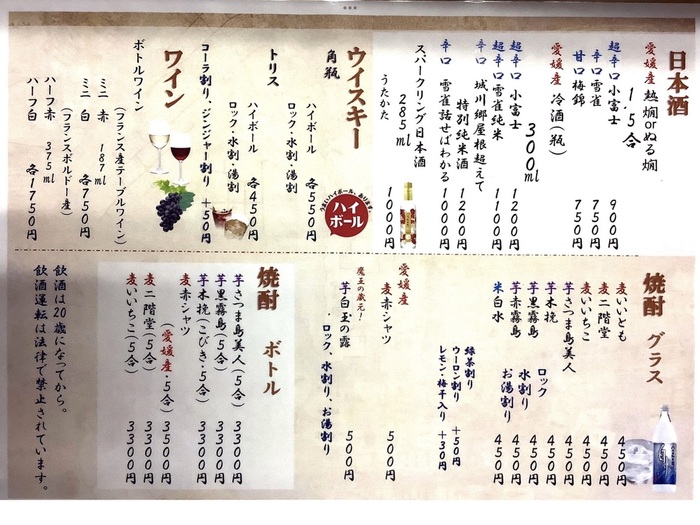 日本酒
愛媛産 熱燗orぬる燗
1.5合
超辛口 小富士 900円
辛口 雪雀 750円
甘口 梅錦 750円
愛媛産 冷酒(瓶)
300ml
超辛口 小富士 1200円
辛口 雪雀純米 1100円
辛口 城川郷屋根越えて
特別純米酒 1200円
辛口 雪雀話せばわかる 1000円
スパークリング日本酒
285ml
うたかた 1000円
ウイスキー
角瓶
ハイボール 各550円
ロック・水割・湯割
トリス
ハイボール 各450円
ロック・水割・湯割
コーラ割り、ジンジャー割り +50円
うまいハイボール、あります。
ハイボール
ワイン
ボトルワイン
(フランス産テーブルワイン)
ミニ 赤 187ml
ミニ 白 各750円
(フランスボルドー産)
ハーフ赤 375ml
ハーフ白 各1750円
焼酎 グラス
麦いいとも 450円
麦二階堂 450円
麦いいちこ 450円
芋さつま島美人 450円
芋木挽 450円
芋黒霧島 450円
芋赤霧島 450円
米白水 450円
ロック
水割り
お湯割り
緑茶割り
ウーロン割り +50円
レモン・梅干入り +30円
愛媛産
麦赤シャツ 500円
魔王の蔵元!
芋白玉の露 500円
・ロック、水割り、お湯割り
焼酎 ボトル
芋さつま島美人(5合) 3300円
芋黒霧島(5合) 3300円
芋木挽(こびき・5合) 3300円
麦赤シャツ
(愛媛産・5合) 3500円
麦二階堂(5合) 3300円
麦いいちこ(5合) 3300円
飲酒は20歳になってから。
飲酒運転は法律で禁止されています。